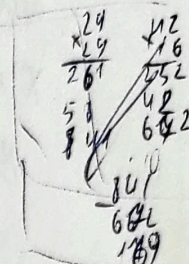 29
×29
261
58
841
42
×16
252
42
672
841
-672
169